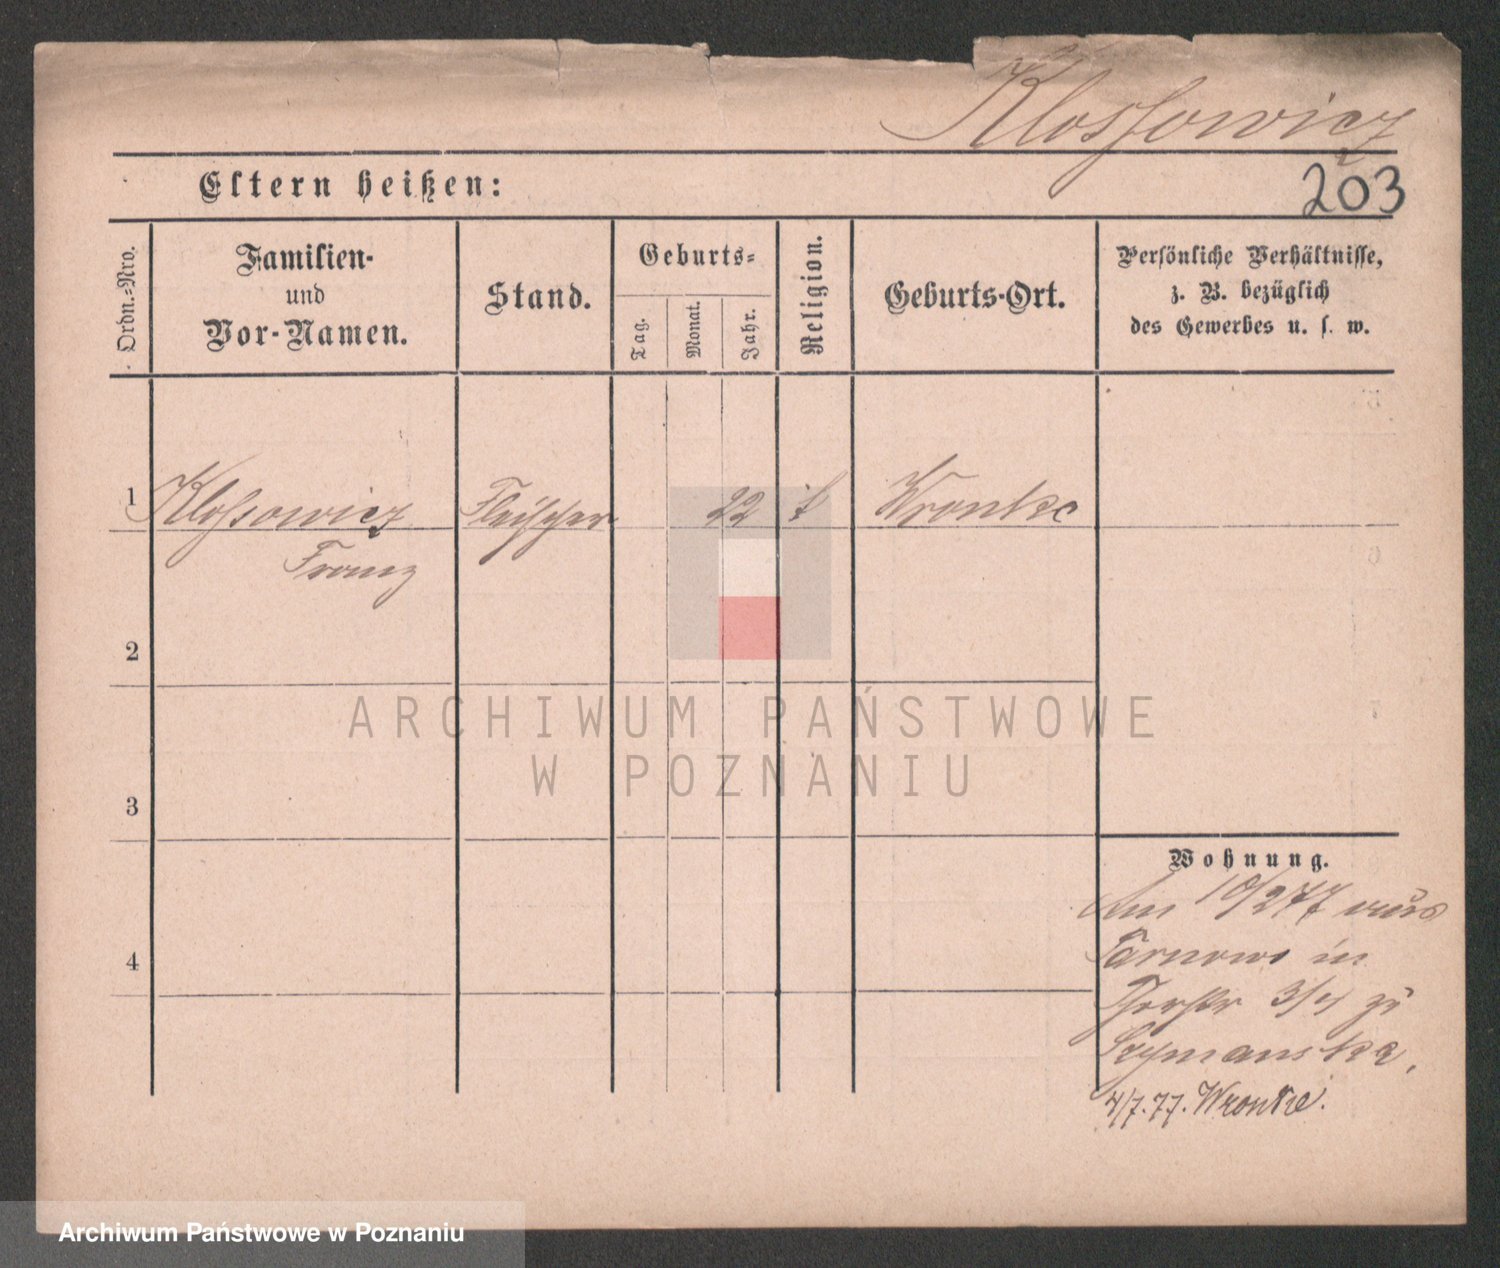 Klossowicz
203
Eltern heißen:
Ordn.-Nro.
Familien-
und
Vor-Namen.
Stand.
Geburts-
Tag.
Monat.
Jahr.
Religion.
Geburts-Ort.
Persönliche Verhältnisse,
z. B. bezüglich
des Gewerbes u. s. w.
1 Klossowicz Fleischer 22 k Wronke
Franz
2
3
4
Wohnung.
Am 10/2 77 aus
Tarnowo in
Thorstr 3/4 zu
Szymanska.
4/7.77. Wronke.
ARCHIWUM PAŃSTWOWE
W POZNANIU
Archiwum Państwowe w Poznaniu